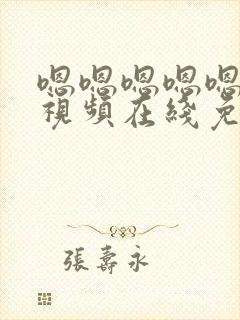 嗯嗯嗯嗯嗯
視頻在綫免
張壽永